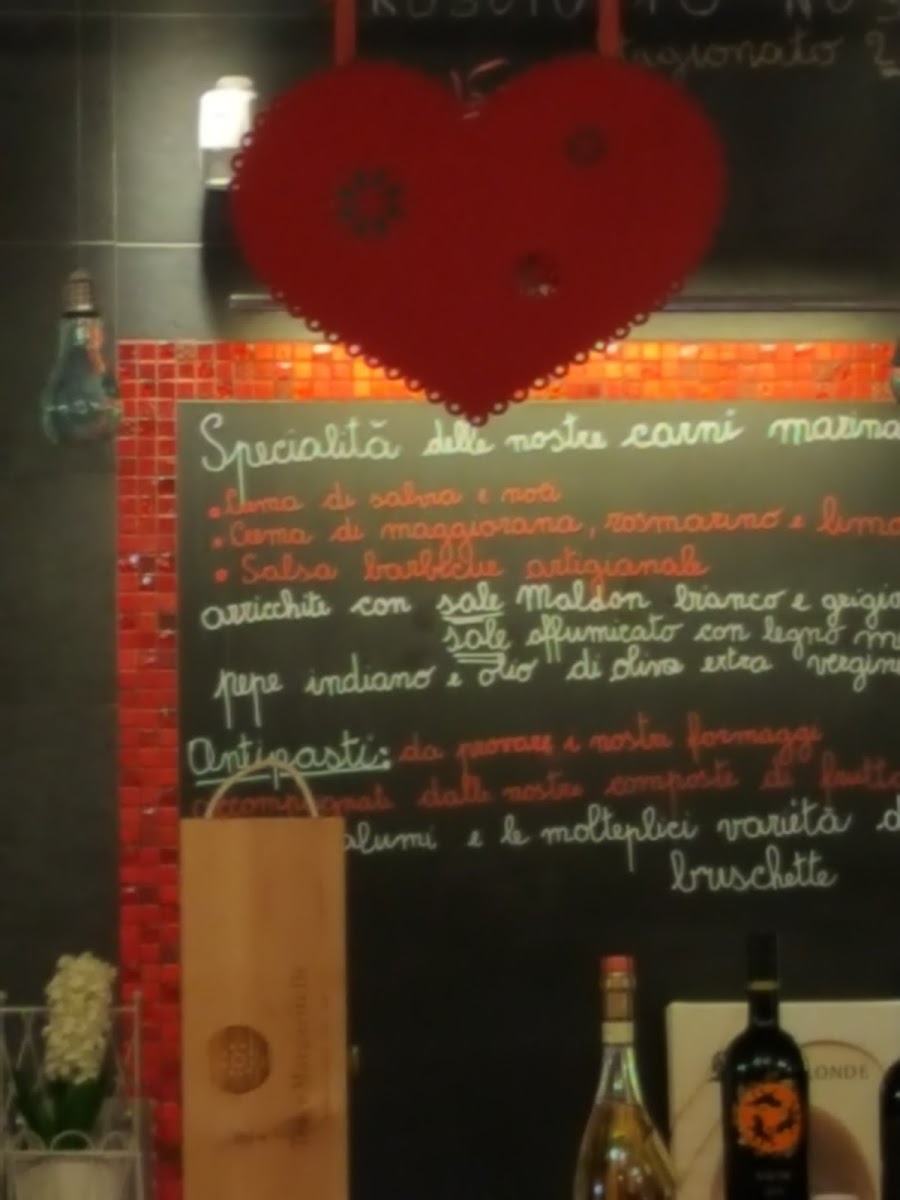 Specialità delle nostre carni marina
• Crema di salvia e noci
• Crema di maggiorana, rosmarino e limo
• Salsa barbecue artigianale
arricchite con sale Maldon bianco e grigio
sale affumicato con legno
pepe indiano e olio di oliva extra vergin
Antipasti: da provare i nostri formaggi
accompagnati dalle nostre composte di frutta
alumi e le molteplici varietà d
bruschette
LONDE